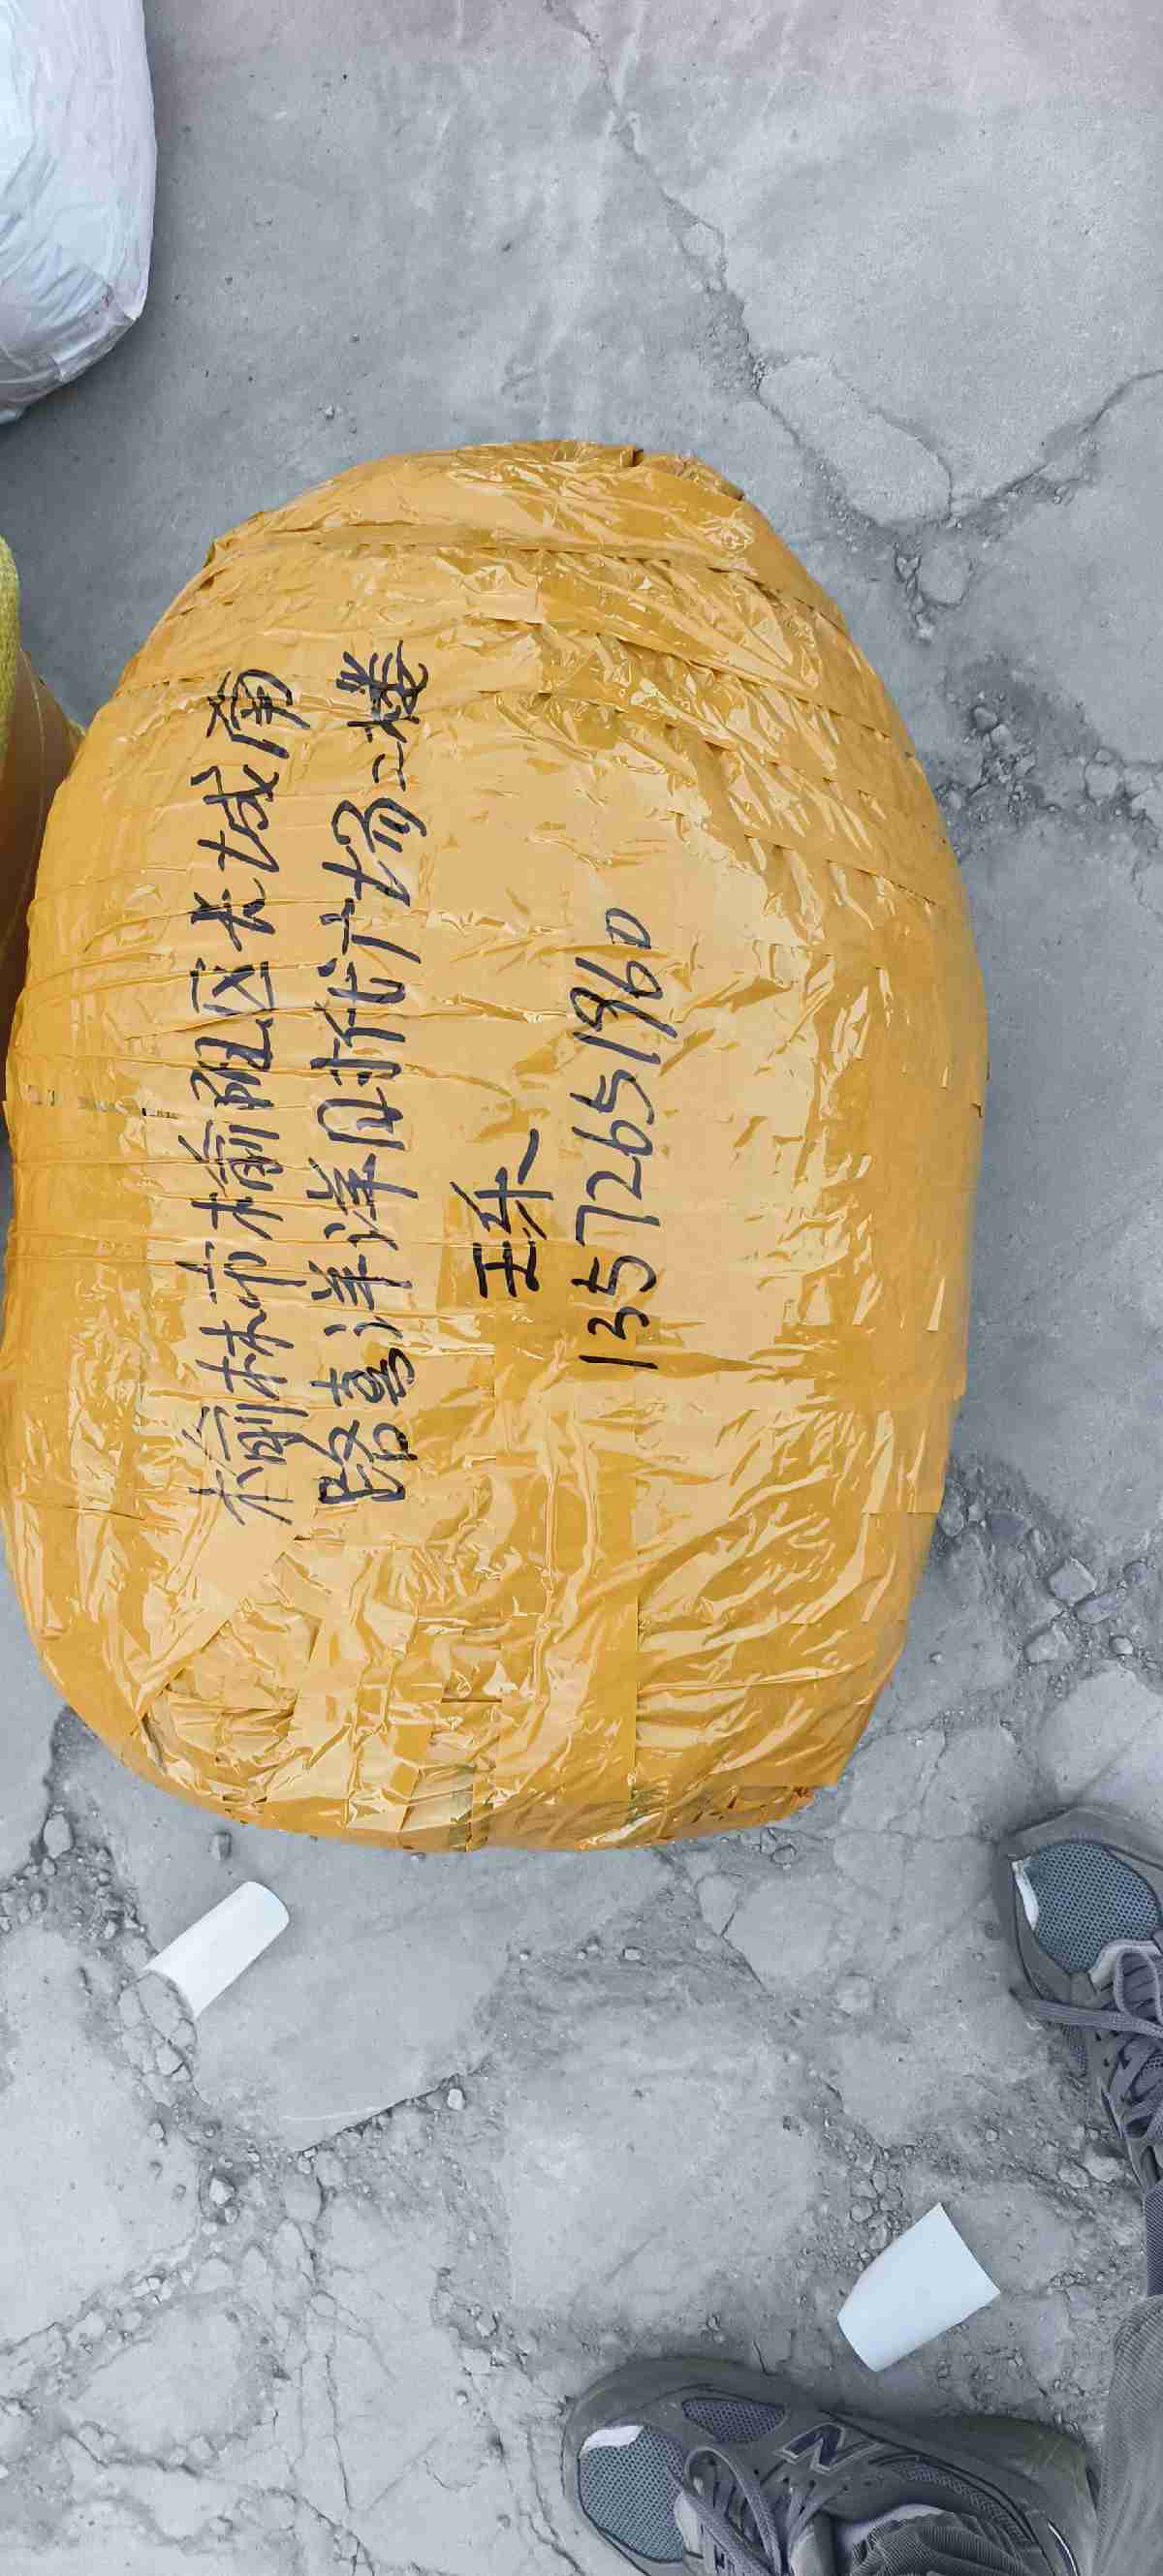 榆林市榆阳区长城南
路喜洋洋时代广场二楼
王乐
13572651960
N